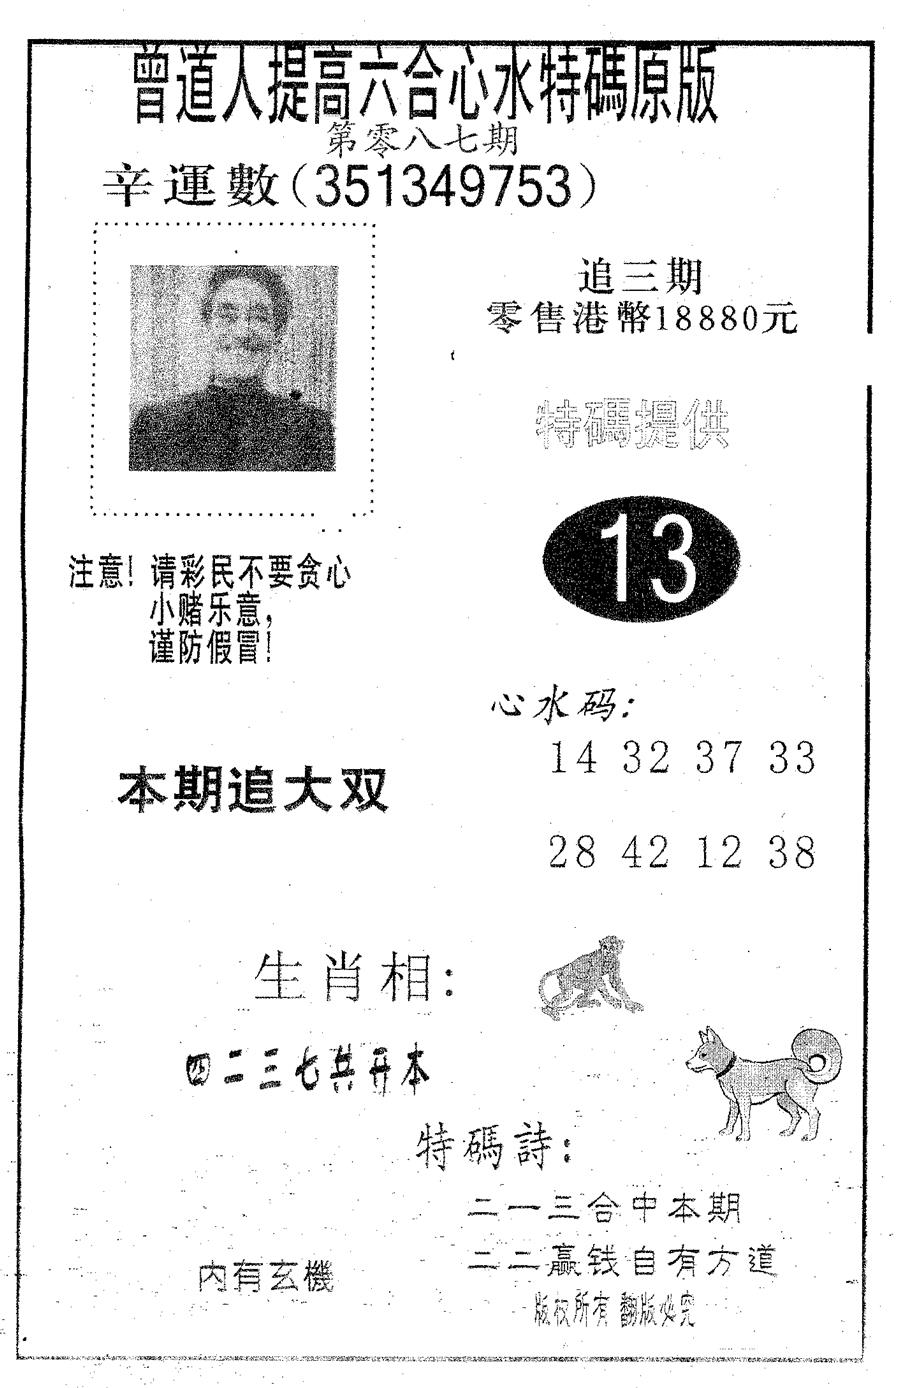 曾道人提高六合心水特碼原版
第零八七期
辛運數(351349753)
追三期
零售港幣18880元
特碼提供
13
注意! 请彩民不要贪心
小赌乐意,
谨防假冒!
心水码:
14 32 37 33
本期追大双
28 42 12 38
生肖相:
四二三七共开本
特碼詩:
二一三合中本期
二二赢钱自有方道
内有玄機
版权所有 翻版必究